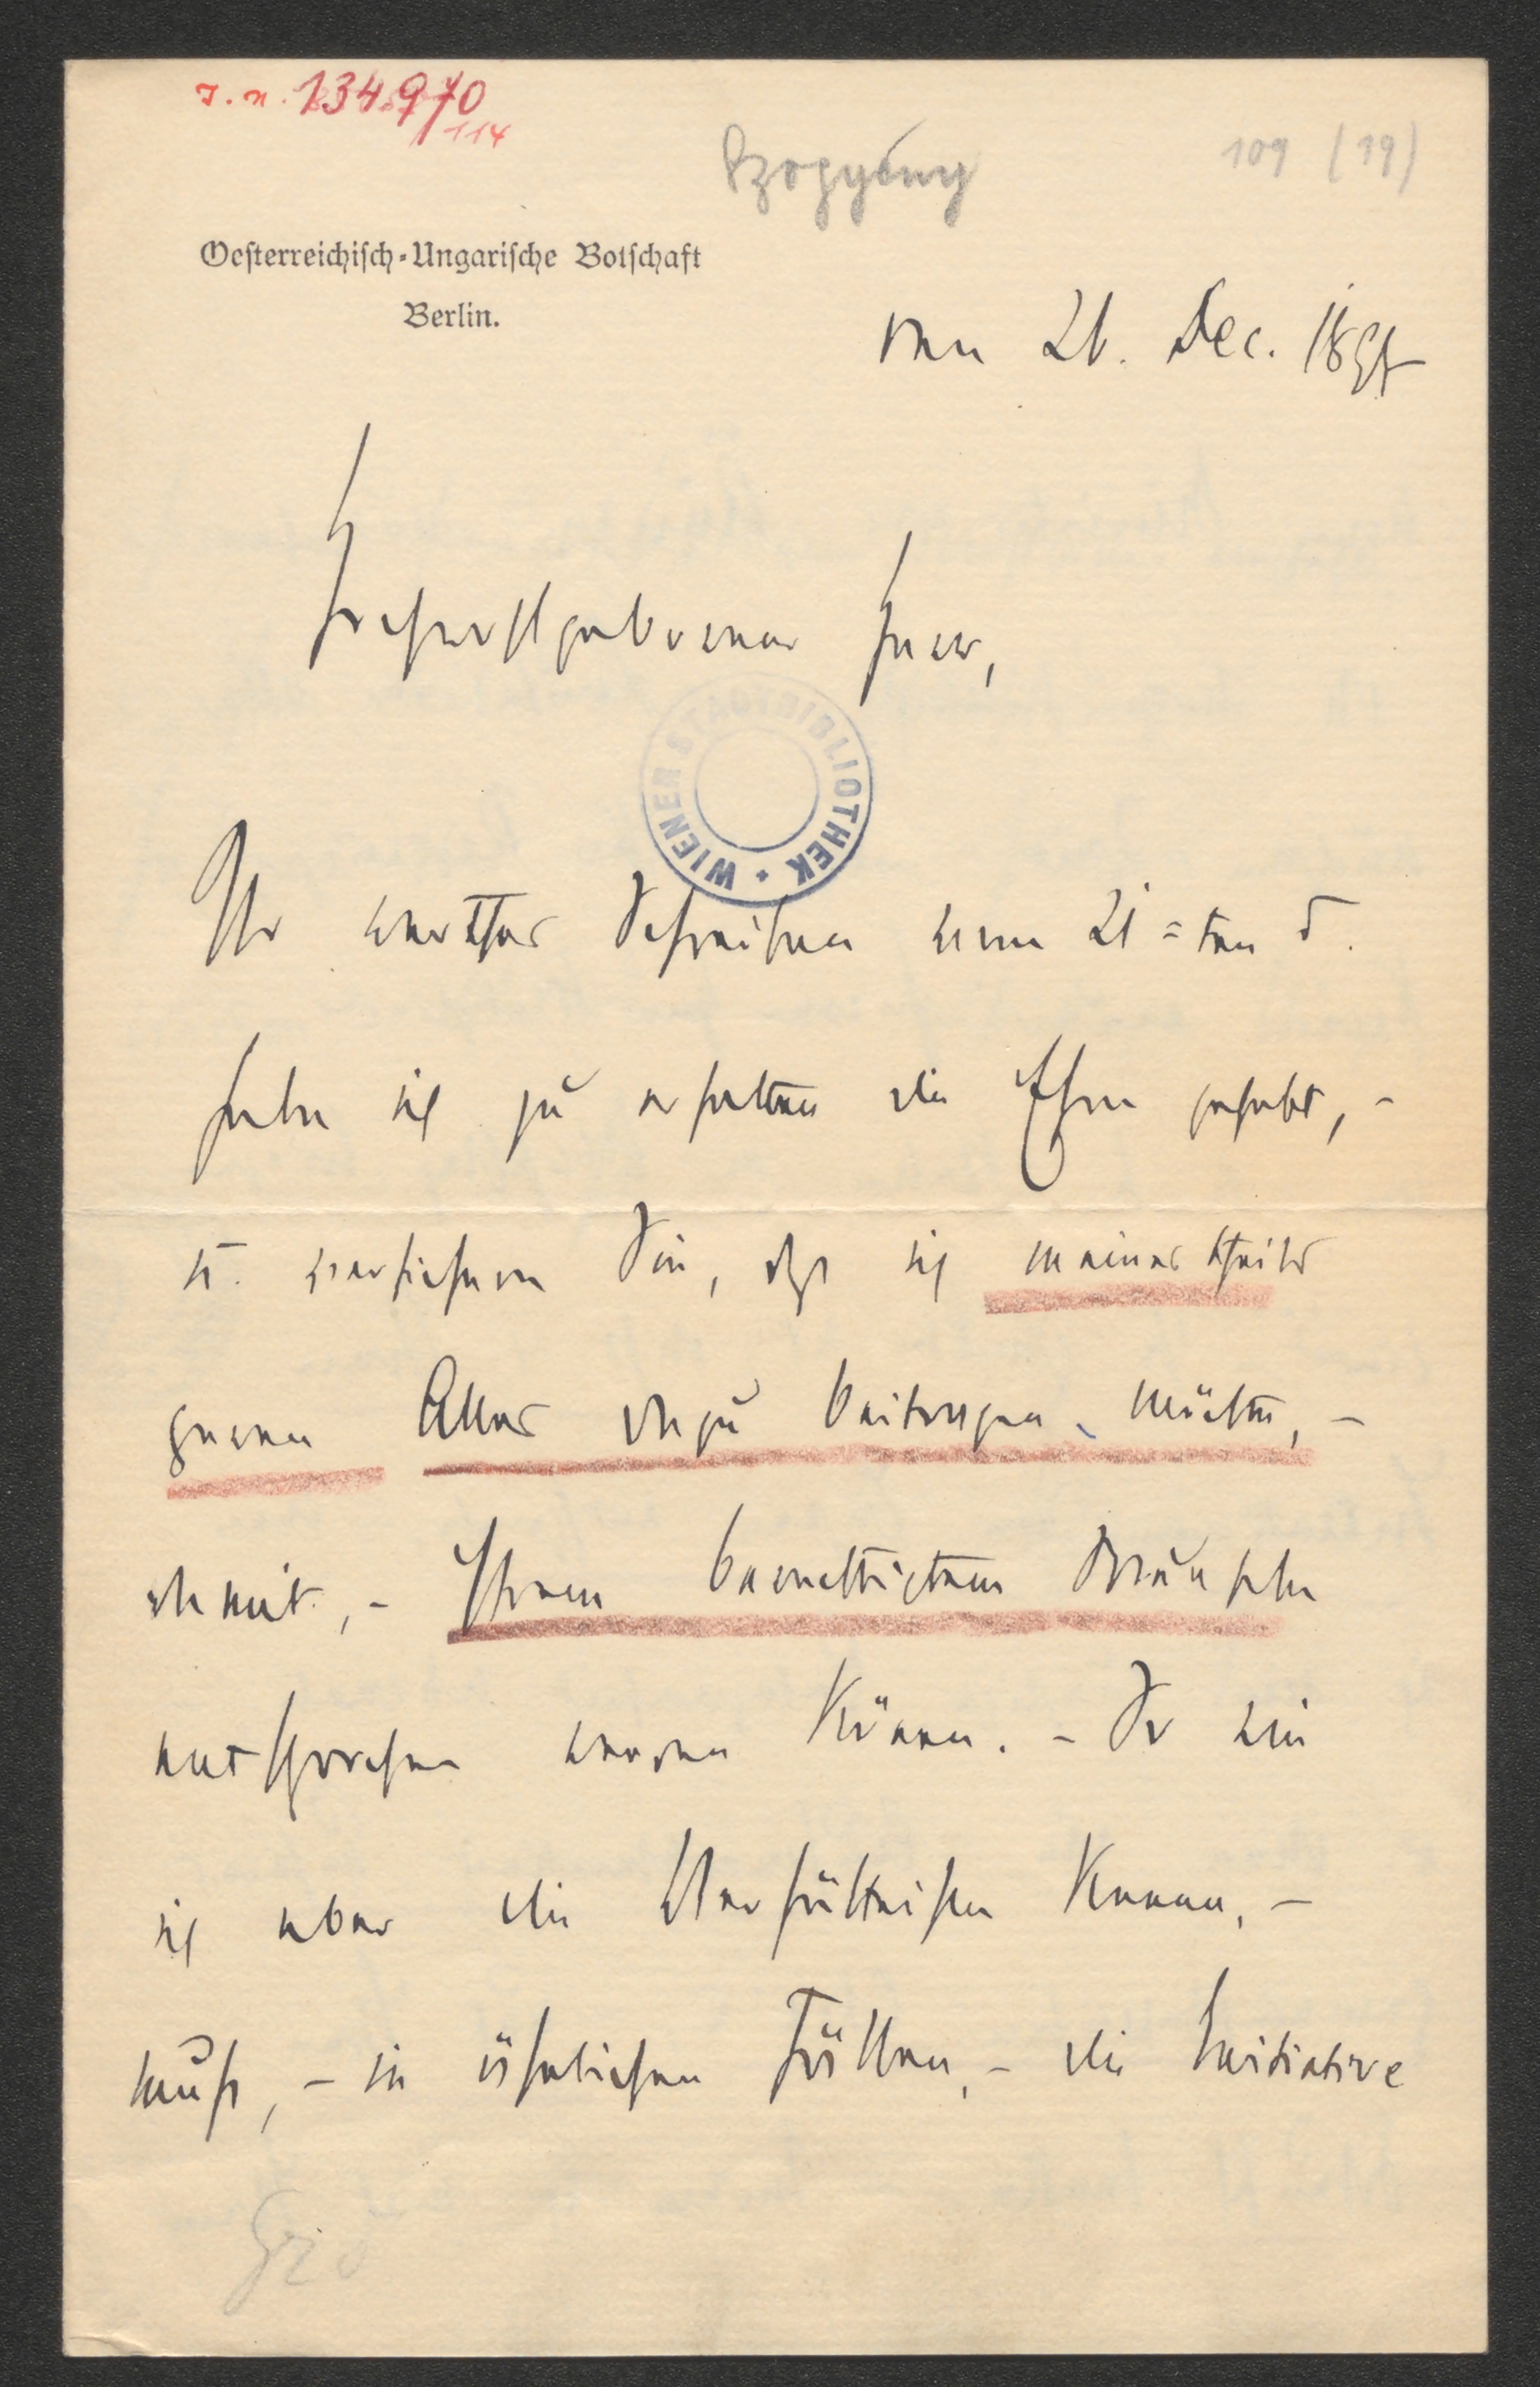 I. N. 134.970
114
Szögyény
109 (19)
Oesterreichisch-Ungarische Botschaft
Berlin.
den 26. Dec. 189
Hochwohlgeborener Herr,
WIENER STADTBIBLIOTHEK
Ihr werthes Schreiben vom 21=ten d.
habe ich zu erhalten die Ehre gehabt, -
u. versichere Sie, daß ich meinerseits
gerne Alles dazu beitragen möchte, -
damit, - Ihrem berechtigten Wunsche
entsprochen werden könne. - So wie
ich aber die Verhältniße kenne, -
muß, - in ähnlichen Fällen, - die Initiative